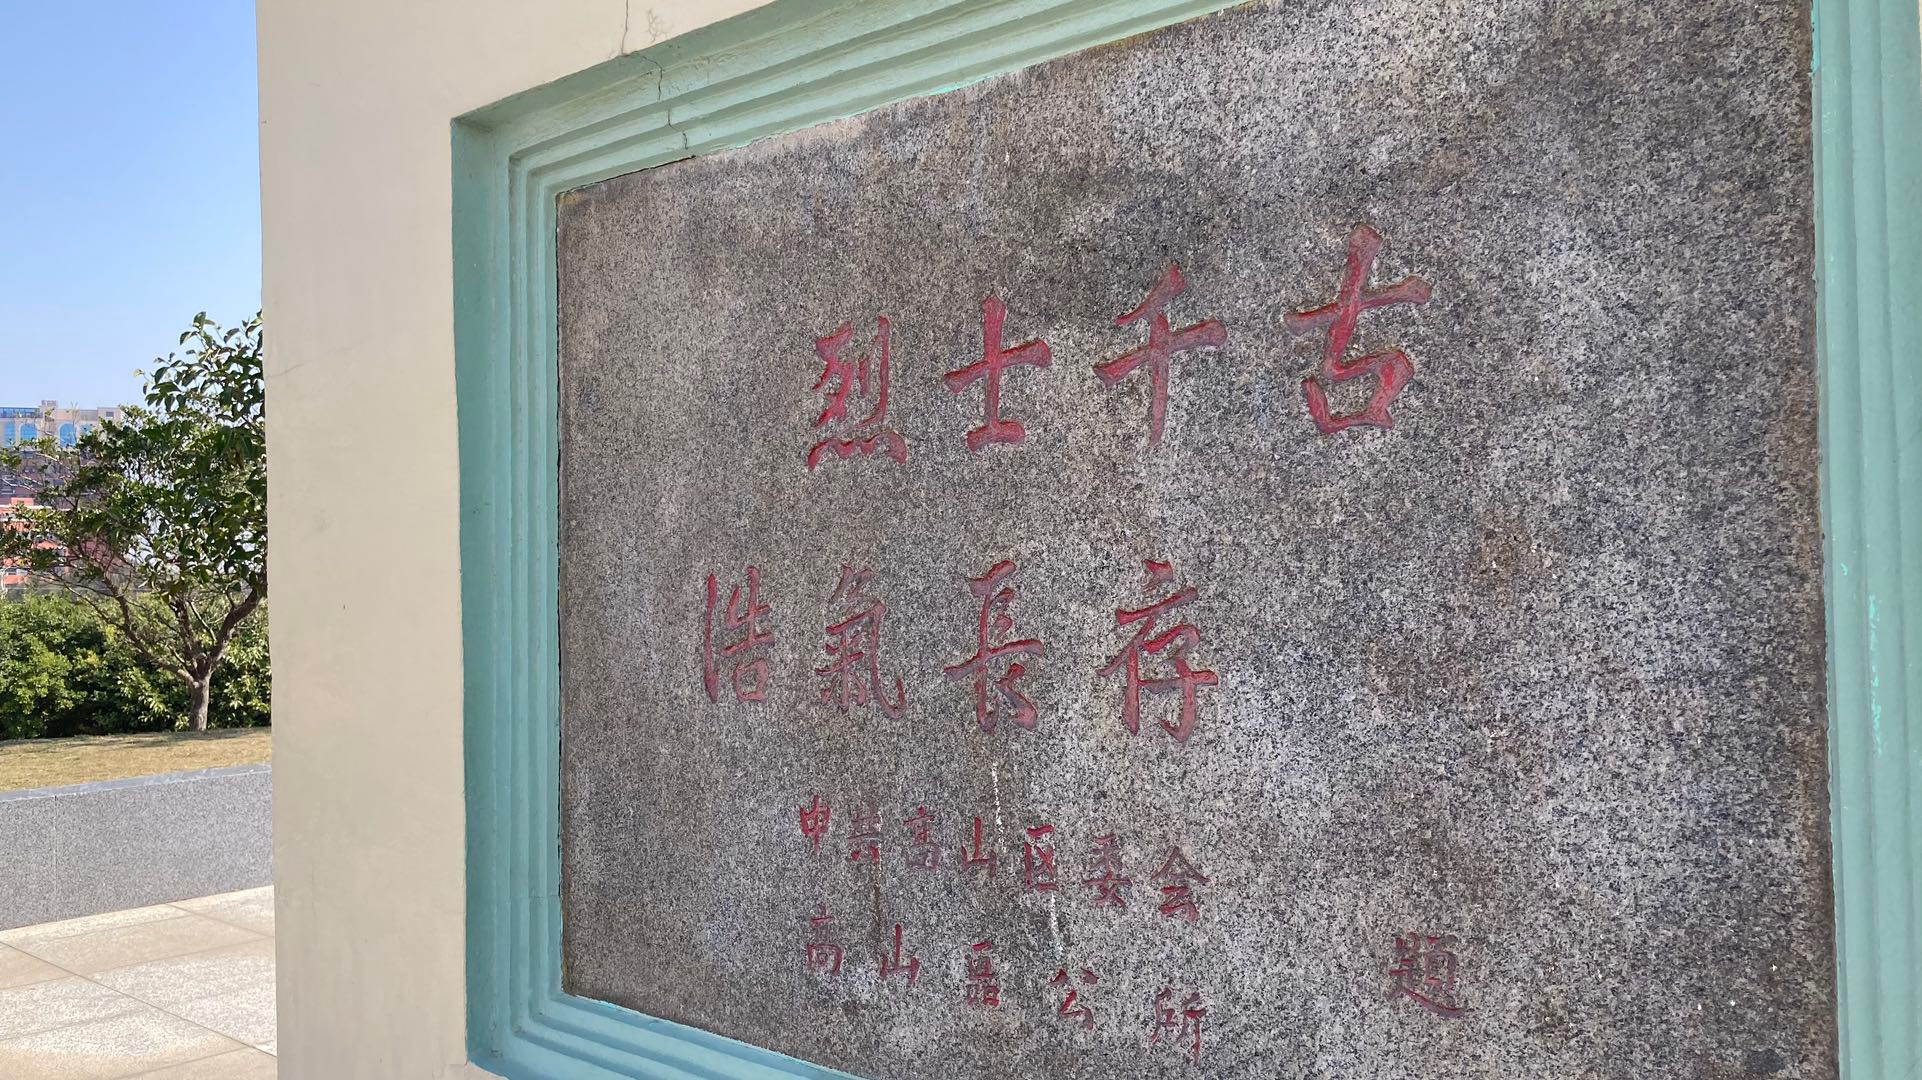 烈士千古
浩氣長存
中共高山区委会
高山區公所 題